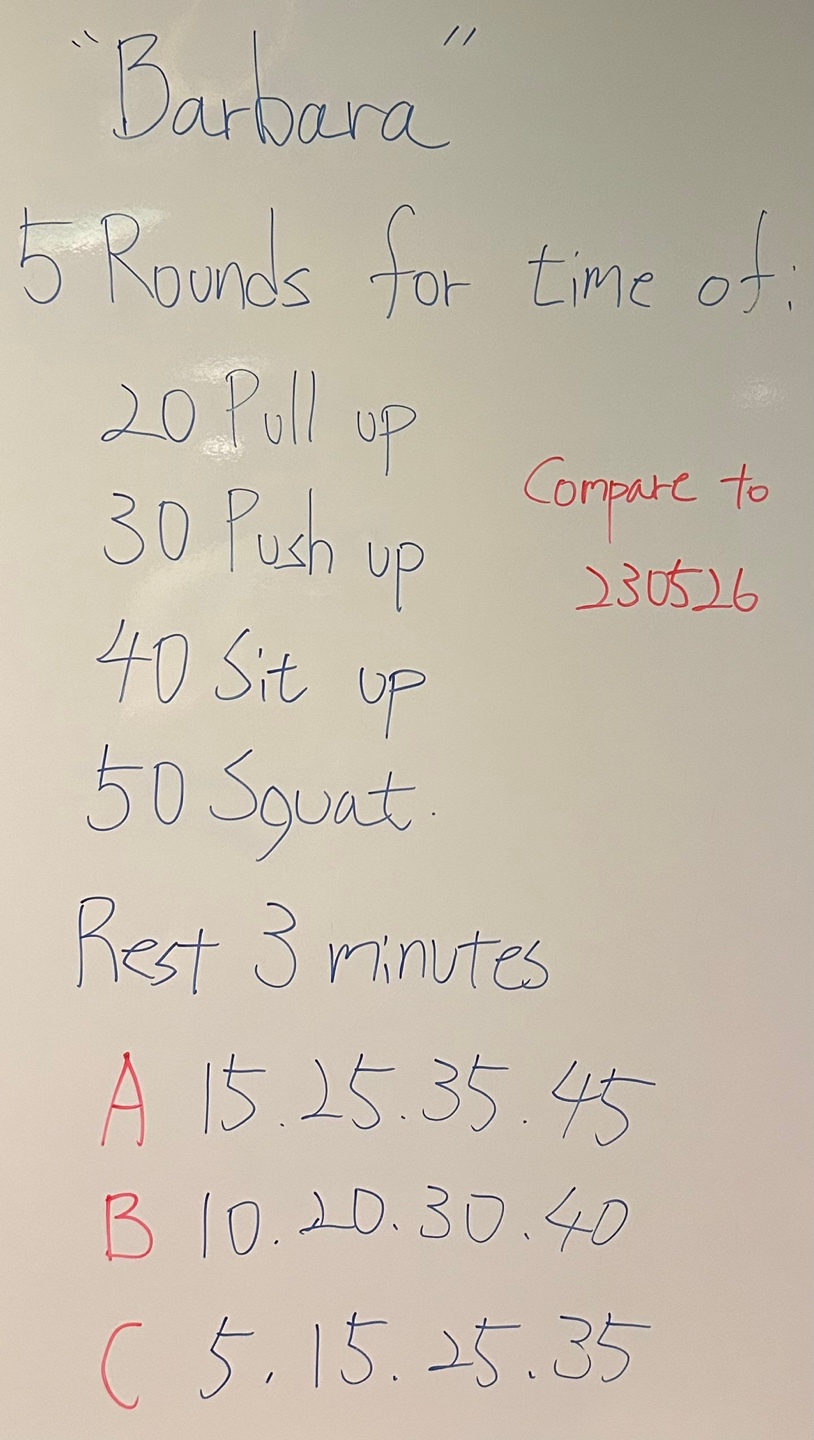 "Barbara"
5 Rounds for time of:
20 Pull up
30 Push up
40 Sit up
50 Squat.
Compare to
230526
Rest 3 minutes
A 15.25.35.45
B 10.20.30.40
C 5.15.25.35